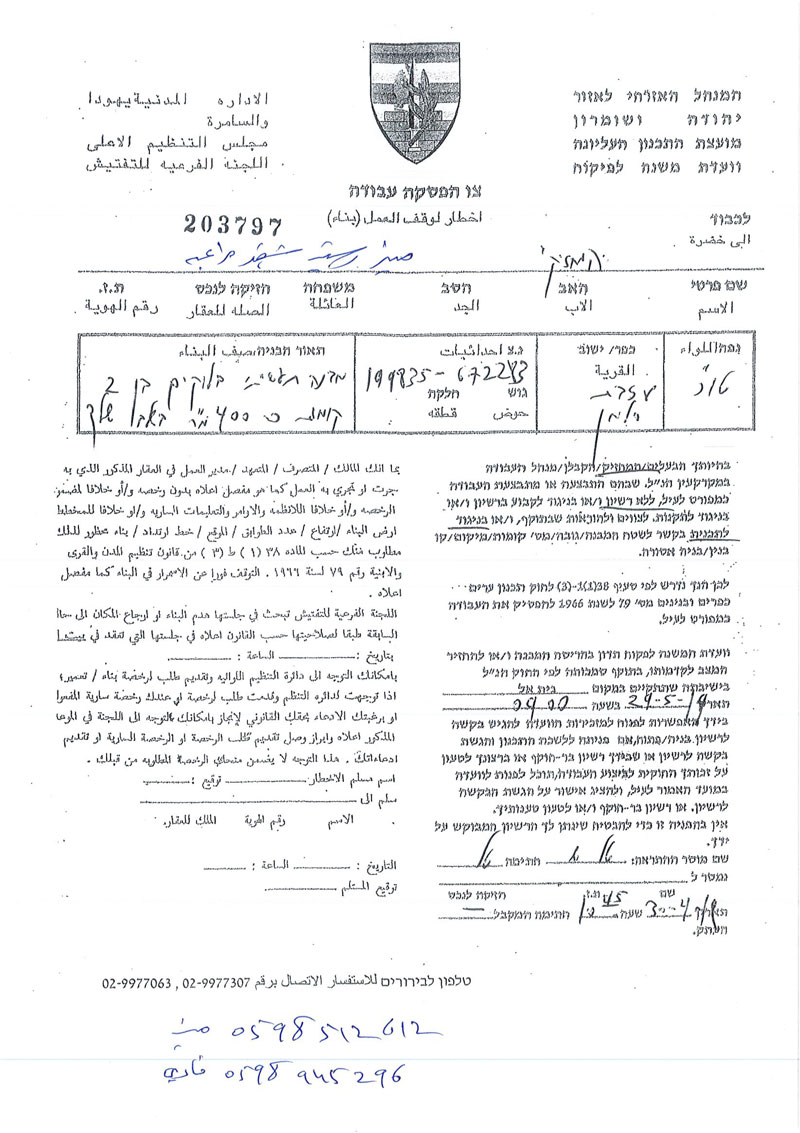 המנהל האזרחי לאזור
יהודה ושומרון
מועצת התכנון העליונה
וועדת משנה לפיקוח
الاداره المدنية يهودا
والسامرة
مجلس التنظيم الاعلى
اللجنة الفرعيه للتفتيش
צו הפסקה עבודה
اخطار لوقف العمل (بناء)
203797
לכבוד
الى حضرة
המחזיק
שם פרטי האב הסב משפחה חזיקה לנכס ת.ז.
الاسم الاب الجد العائلة الصله للعقار رقم الهوية
נפה/اللواء כפר/ ישוב القرية נ.צ احداثيات תאור הבניה/صيف البناء
199835-672283
גוש חלקה
حوض قطعه
מבנה בלוקים בן 2
קומות כ 400 מ"ר
בהיותך הבעלים/המחזיק/הקבלן/מנהל העבודה
במקרקעין הנ"ל, שבהם התבצעה או מתבצעת העבודה
כמפורט לעיל, ללא רשיון ו/או בניגוד לקבוע ברשיון ו/או
בניגוד לתקנות, לצווים ולהוראות שבתוקף, ו/או בניגוד
לתכנית בקשר לשטח המבנה/גובה/מס' קומות/מיקום/קו
בנין/בניה אסורה.
לכן הנך נדרש לפי סעיף 38(1)-(3) לחוק תכנון ערים
כפרים ובנינים מס' 79 לשנת 1966 להפסיק את העבודה
כמפורט לעיל.
וועדת המשנה לפקוח תדון בהריסת המבנה ו/או להחזיר
המצב לקדמותו, בתוקף סמכותה לפי החוק הנ"ל
בישיבתה שתתקיים במקום בית אל
תאריך 29-5-18 בשעה 09.00
בידך האפשרות לפנות למזכירות הוועדה להגיש בקשה
לרשיון בניה/פתוח, אם פניתה ללשכת התכנון והגשת
בקשה לרשיון או שבידך רשיון בר-תוקף או ברצונך לטעון
על זכותך החוקית לביצוע העבודה, תוכל לפנות לוועדה
במועד האמור לעיל, ולהציג אישור על הגשת הבקשה
לרשיון, או רשיון בר-תוקף ו/או לטעון טענותיך.
אין בהפניה זו כדי להבטיח שינותן לך הרשיון המבוקש על
ידך.
שם מוסר ההתראה: חתימה
נמסר ל
שם ת.ז. חזיקה לנכס
תאריך 3-4-18 שעה חתימת המקבל
העתק.
بما انك المالك / المتصرف / المتعهد / مدير العمل في العقار المذكور الذي به
جرت او تجري به العمل كما هو مفصل اعلاه بدون رخصه و/أو خلافا لمضمون
الرخصه و/أو خلافا للانظمه والاوامر والتعليمات السارية و/او خلافا للمخطط
ارض البناء /ارتفاع / عدد الطوابق / الموقع / خط ارتداد / بناء محظور لذلك
مطلوب منك حسب الماده ٣٨ (١) ط (٣) من قانون تنظيم المدن والقرى
والابنية رقم ٧٩ لسنة ١٩٦٦ . التوقف فورا عن الاستمرار في البناء كما مفصل
اعلاه .
اللجنة الفرعية للتفتيش تبحث في جلستها هدم البناء او ارجاع المكان الى حالته
السابقة طبقا لصلاحيتها حسب القانون اعلاه في جلستها التي تعقد في
بتاريخ: الساعة :
بامكانك التوجه الى دائرة التنظيم اللوائيه وتقديم طلب لرخصة بناء / تعمير؛
اذا توجهت لدائره التنظيم وقدمت طلب لرخصة او عندك رخصة سارية المفعول
او برغبتك الادعاء بحقك القانوني لإنجاز بامكانك التوجه الى اللجنة في الموعد
المذكور اعلاه وابراز وصل تقديم طلب الرخصة او الرخصة السارية او تقديم
ادعاءاتك . هذا التوجه لا يضمن منحك الرخصة المطلوبه من قبلك .
اسم مسلم الاخطار توقيع :
سلم الى
الاسم رقم الهوية الملك للعقار.
التاريخ : الساعة :
توقيع المستلم
טלפון לבירורים للاستفسار الاتصال برقم 02-9977307 , 02-9977063
0598 512612
0598 945 296